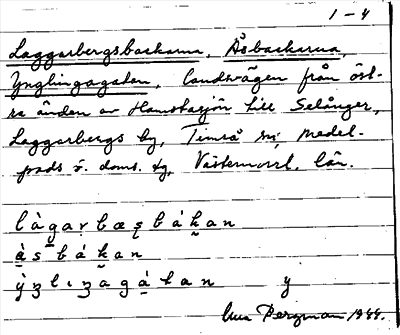 1 - 4
Laggarbergsbackarna, Åsbackarna,
Ynglingagatan, landsvägen från öst-
ra änden av Hamstasjön till Selånger,
Laggarbergs by, Timrå sn, Medel-
pads ö. doms. tg, Västernorrl. län.
làgarbæsbákan
àsbákan
ỳzlızagátan y
Bergman 1944.